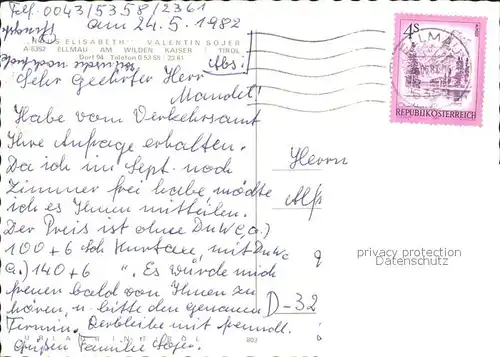 Telf. 0043/5358/2361
am 24.5.1982
HAUS ELISABETH VALENTIN SOJER
A-6352 ELLMAU AM WILDEN KAISER TIROL
Dorf 94 Telefon 0 53 58 / 23 61
Abs:
Sehr Geehrter Herr
Mandet!
Habe vom Verkehrsamt
Ihre Anfrage erhalten.
Da ich im Sept. noch
Zimmer frei habe möchte
ich es Ihnen mitteilen.
Der Preis ist ohne DuWC,a)
100+6 Sch Kurtaxe, mit DuWc
a) 140+6 ". Es würde mich
freuen bald von Ihnen zu
hören, u. bitte den genauen
Termin. Verbleibe mit freundl.
Grüßen Familie Sojer.
Herrn
D-32
4S
REPUBLIK ÖSTERREICH
ELLMAU
privacy protection
Datenschutz
803